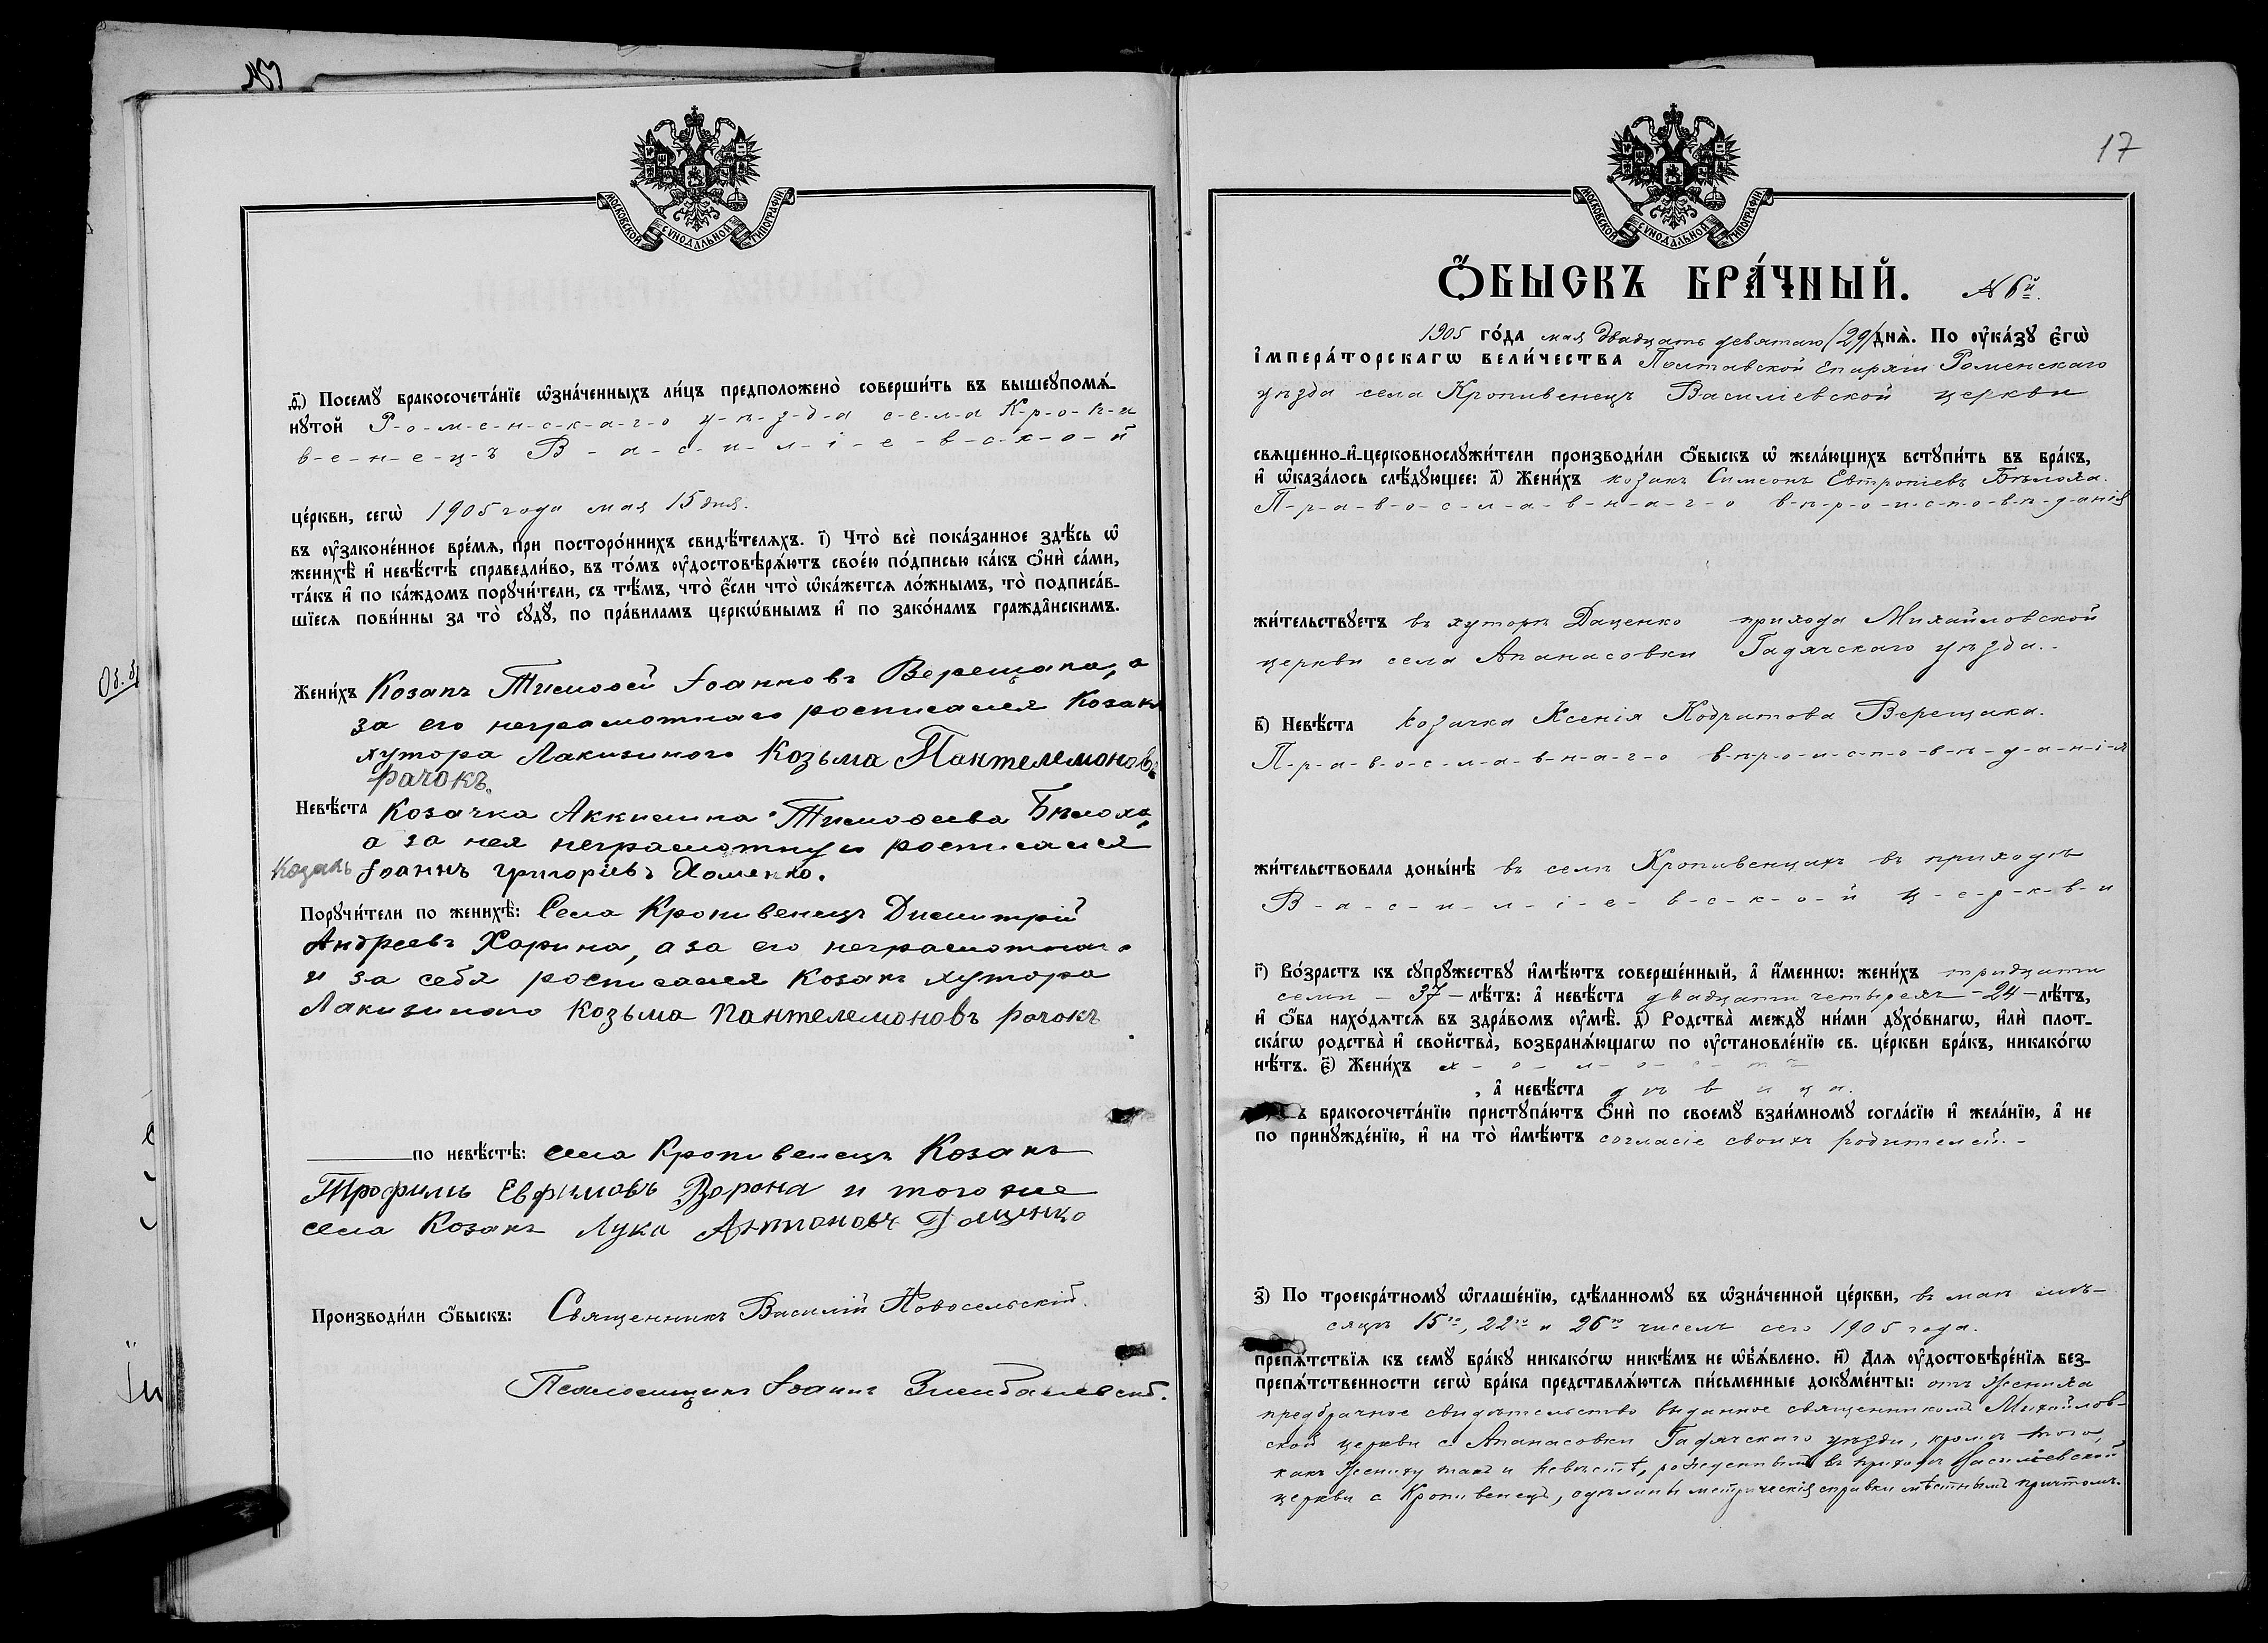 МОСКОВСКОЙ СѴНОДАЛЬНОЙ ТИПОГРАФІИ
ѳ҃) Посемꙋ бракосочета́нїе ѡ҆зна́ченныхъ ли́цъ предположено̀ соверши́ть въ вышеꙋпомѧ́-
нꙋтой Р-о-м-е-н-с-к-а-г-о у-ѣ-з-д-а с-е-л-а К-р-о-п-и
в-е-н-е-ц-ъ В-а-с-и-л-і-е-в-с-к-о-й
це́ркви, сегѡ̀ 1905 года мая 15 дня.
въ ᲂу҆законе́нное вре́мѧ, при посторо́ннихъ свидѣ́телѧхъ. і҃) Что̀ всѐ пока́занное здѣ́сь ѡ҆
женихѣ̀ и҆ невѣ́стѣ справедли́во, въ то́мъ ᲂу҆достовѣрѧ́ютъ свое́ю по́дписью ка́къ ѻ҆нѝ са́ми,
та́къ и҆ по ка́ждомъ порꙋчи́тели, съ тѣ́мъ, что̀ є҆́сли что̀ ѡ҆ка́жетсѧ ло́жнымъ, то̀ подписа́в-
шїесѧ пови́нны за то̀ сꙋдꙋ̀, по пра́виламъ церко́внымъ и҆ по зако́намъ гражда́нскимъ.
Жени́хъ Козакъ Тимоѳей Іоанновъ Верещака, а
за его неграмотнаго росписался Козакъ
хутора Лакизиного Козьма Пантелемоновъ
рачокъ.
Невѣ́ста Козачка Аккилина Тимоѳеева Бѣлоха,
а за нея неграмотную росписался
Козакъ Іоаннъ григоріевъ Хоменко.
Порꙋчи́тели по женихѣ̀: Села Кропивенецъ Димитрій
Андреевъ Харина, а за его неграмотнаго
и за себя росписался Козакъ хутора
Лакизиного Козьма Пантелемоновъ рачокъ
по невѣ́стѣ: села Кропивенецъ Козакъ
Трофимъ Евфимовъ Ворона и того же
села Козакъ Лука Антоновъ
Производи́ли ѻ҆́быскъ: Священникъ Василій Новосельскій.
Псаломщикъ Іоаннъ
17
МОСКОВСКОЙ СѴНОДАЛЬНОЙ ТИПОГРАФІИ
Ѻ҆́БЫСКЪ БРА́ЧНЫЙ. № 6й.
1905 го́да мая двадцать девятаго (29) днѧ̀. По ᲂу҆ка́зꙋ є҆гѡ̀
і҆мпера́торскагѡ вели́чества Полтавской Епархіи Роменскаго
уѣзда села Кропивенецъ Василіевской церкви
свѧщенно-и҆-церковнослꙋжи́тели производи́ли ѻ҆́быскъ ѡ҆ жела́ющихъ вступи́ть въ бра́къ,
и҆ ѡ҆каза́лось слѣ́дꙋющее: а҃) Жени́хъ козакъ Симеонъ Евтропіевъ Бѣлоха.
П-р-а-в-о-с-л-а-в-н-а-г-о в-ѣ-р-о-и-с-п-о-в-ѣ-д-анія
жи́тельствꙋетъ въ хуторѣ Даценко прихода Михайловской
церкви села Апанасовки Гадячскаго уѣзда.
в҃) Невѣ́ста козачка Ксенія Кодратова Верещака.
П-р-а-в-о-с-л-а-в-н-а-г-о в-ѣ-р-о-и-с-п-о-в-ѣ-д-а-н-і-я
жи́тельствовала доны́нѣ въ селѣ Кропивенцахъ въ приходѣ
В-а-с-и-л-і-е-в-с-к-о-й ц-е-р-к-в-и
г҃) Во́зрастъ къ сꙋпрꙋ́жествꙋ и҆мѣ́ютъ соверше́нный, а҆ и҆́меннѡ: жени́хъ тридцати
семи – 37 – лѣ́тъ: а҆ невѣ́ста двадцати четырехъ – 24 – лѣ́тъ,
и҆ ѻ҆́ба нахо́дѧтсѧ въ здра́вомъ ᲂу҆мѣ̀. д҃) Родства̀ междꙋ ни́ми дꙋхо́внагѡ, и҆лѝ плот-
ска́гѡ родства̀ и҆ сво́йства̀, возбранѧ́ющагѡ по ᲂу҆становле́нїю св. це́ркви бра́къ, никако́гѡ
нѣ́тъ. є҃) Жени́хъ х-о-л-о-с-т-ъ
, а҆ невѣ́ста д ѣ в и ц а.
ъ бракосочета́нїю пристꙋпа́ютъ ѻ҆нѝ по своемꙋ̀ взаи́мномꙋ согла́сїю и҆ жела́нїю, а҆ не
по принꙋжде́нїю, и҆ на то̀ и҆мѣ́ютъ согласіе своихъ родителей.
з҃) По троекра́тномꙋ ѡ҆глаше́нїю, сдѣ́ланномꙋ въ ѡ҆зна́ченной це́ркви, въ маѣ мѣ-
сяцѣ 15го, 22го и 26го чиселъ сего 1905 года.
препѧ́тствїѧ къ семꙋ̀ бра́кꙋ никако́гѡ никѣ́мъ не ѡ҆б̾ѧ́влено. и҃) Длѧ ᲂу҆достовѣре́нїѧ без-
препѧ́тственности сегѡ̀ бра́ка представлѧ́ютсѧ пи́сьменные докꙋме́нты: отъ жениха
предбрачное свидѣтельство выданное священникомъ Михайлов-
ской церкви с. Апанасовки Гадячскаго уѣзда, кромѣ того,
какъ жениху такъ и невѣстѣ, рожденнымъ въ приходѣ Василіевской
церкви с. Кропивенецъ, сдѣланы метрическія справки мѣстнымъ причтомъ.